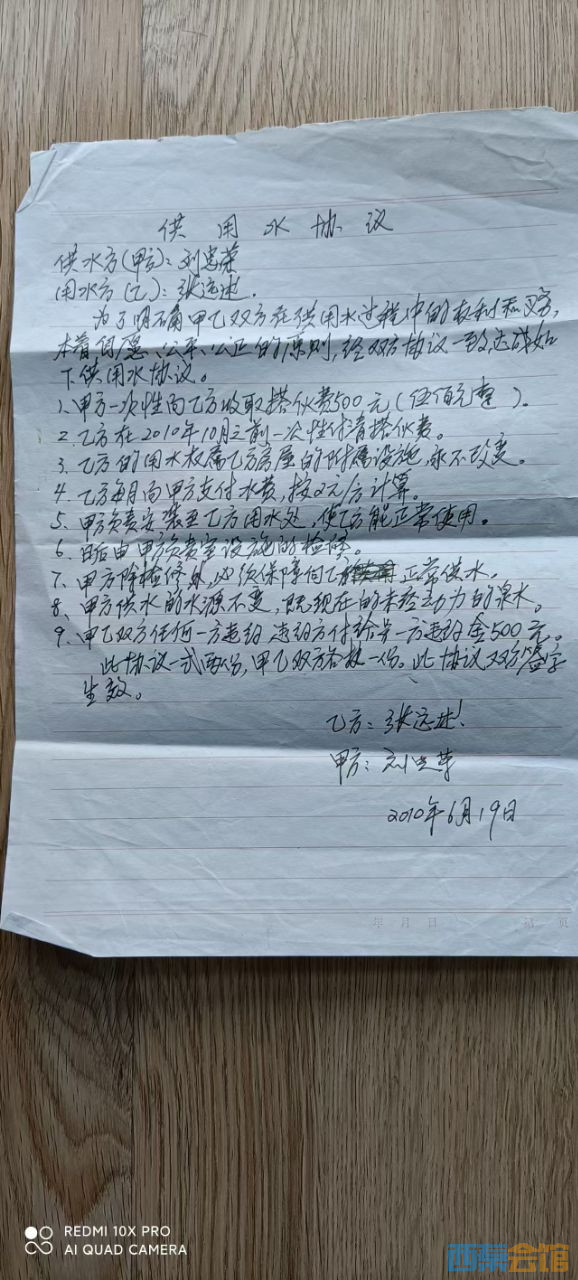 供用水协议
供水方(甲方):刘忠荣
用水方(乙):张远述.
为了明确甲乙双方在供用水过程中的权利和义务,
本着自愿、公平、公正的原则,经双方协议一致,达成如
下供用水协议。
1、甲方一次性向乙方收取搭伙费500元(伍佰元整)。
2、乙方在2010年10月之前一次性付清搭伙费。
3、乙方的用水权属乙方房屋的附属设施,永不改变。
4、乙方每月向甲方支付水费,按2元/吨计算。
5、甲方负责安装至乙方用水处,使乙方能正常使用。
6、日后由甲方负责设施的检修。
7、甲方除检修外,必须保障向乙方正常供水。
8、甲方供水的水源不变,既现在的未经动力的泉水。
9、甲乙双方任何一方违约,违约方付给另一方违约金500元。
此协议一式两份,甲乙双方各执一份。此协议双方签字
生效。
乙方:张远述
甲方:刘忠荣
2010年6月19日
年 月 日 第 页
REDMI 10X PRO
AI QUAD CAMERA
西渠会馆